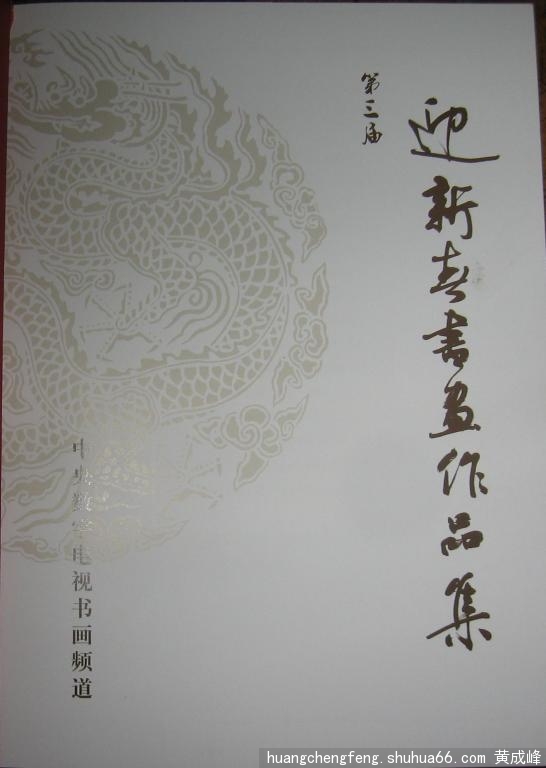 第三届
迎新春書畫作品集
中央数字电视书画频道
huangchengfeng.shuhua66.com 黄成峰